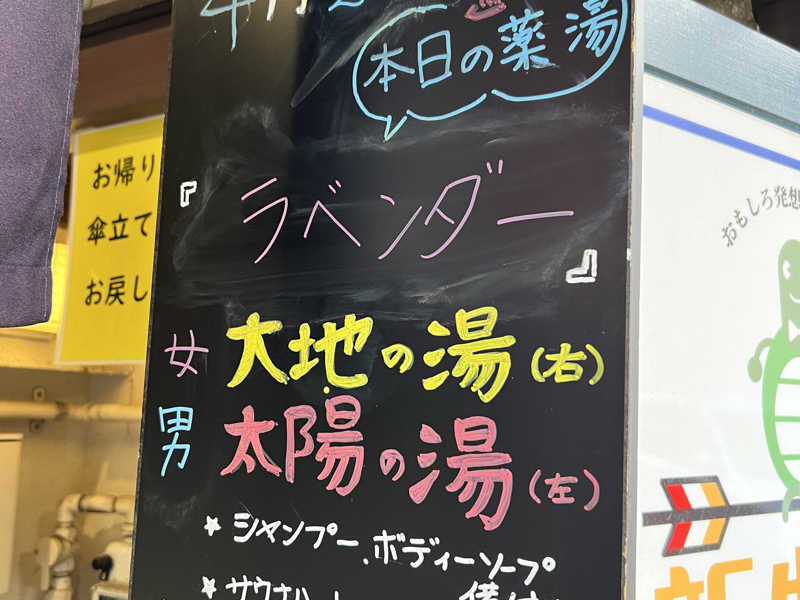 本日の薬湯
『ラベンダー』
女 大地の湯(右)
男 太陽の湯(左)
★シャンプー、ボディーソープ
お帰り
傘立て
お戻し
おもしろ発想